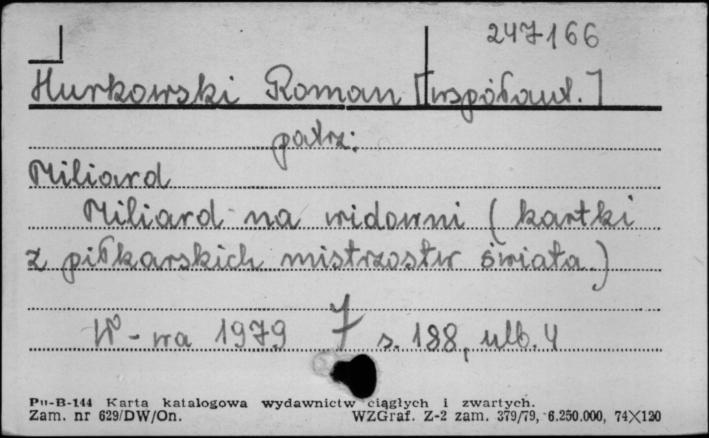 247166
Hurkowski Roman [współaut.]
patrz:
Miliard
Miliard na widowni (kartki
z piłkarskich mistrzostw świata.)
W-wa 1979 7 s. 188, nlb. 4
Pu-B-144 Karta katalogowa wydawnictw ciągłych i zwartych.
Zam. nr 629/DW/On. WZGraf. Z-2 zam. 379/79, 6.250.000, 74X120